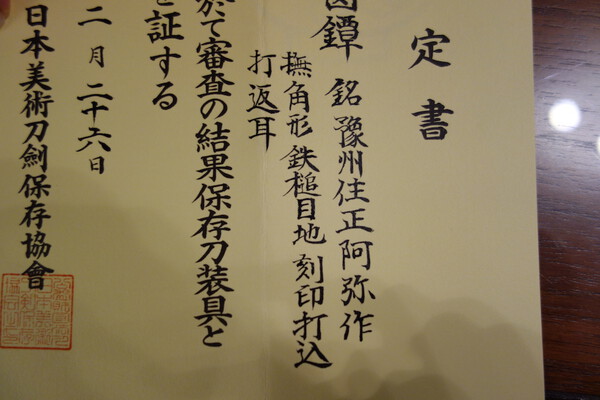 定書
鐔 銘 豫州住正阿弥作
撫角形 鉄槌目地 刻印打込
打返耳
於て審査の結果保存刀装具と
証する
二月二十六日
日本美術刀劍保存協會